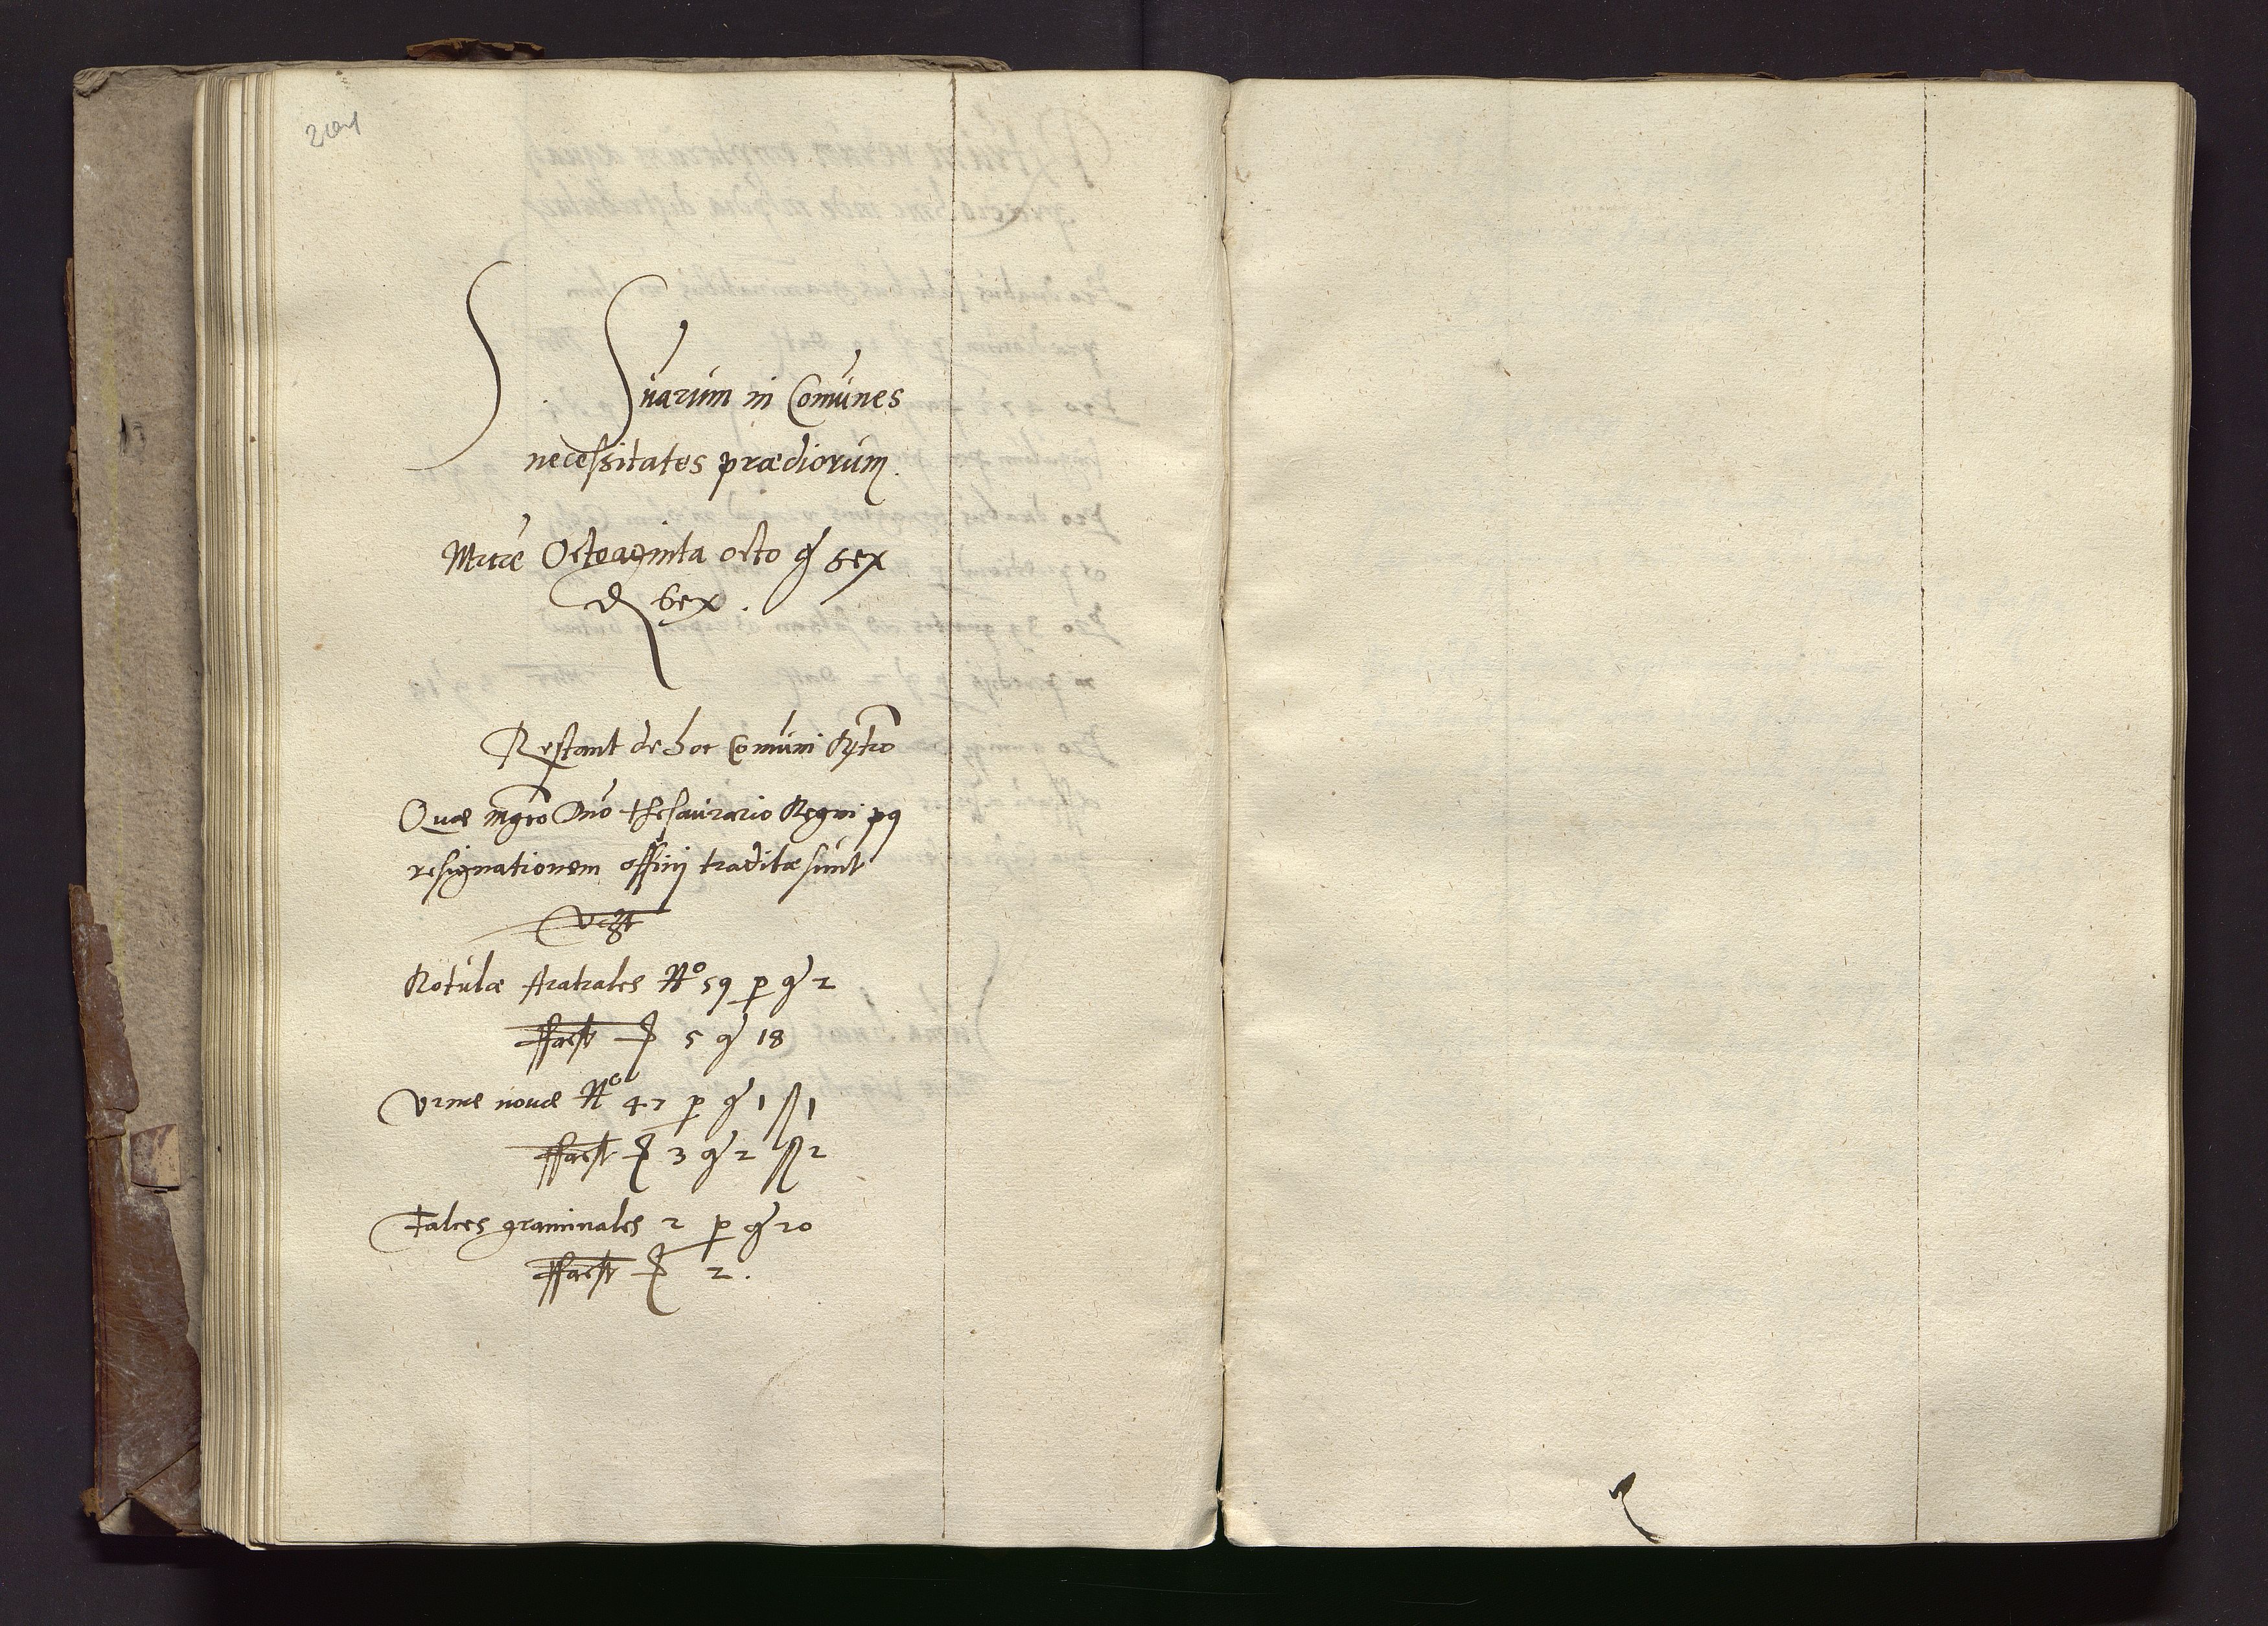 S Suarum in Comunes
necessitates prædiorum.
Mrcæ Octoaginta octo gr sex
d sex.
Restant de hoc Comuni Rgtro
Quæ mgco Dno thesaurario Regni pq
resignationem officij traditæ sunt
Vczt
Rotulæ Aratrales No 59 p gr 2
ffacit f 5 gr 18
Urnæ nouæ No 47 p gr 1 ß 1
ffacit f 3 gr 2 ß 2
Falces graminales 2 p gr 20
ffacit f 2.